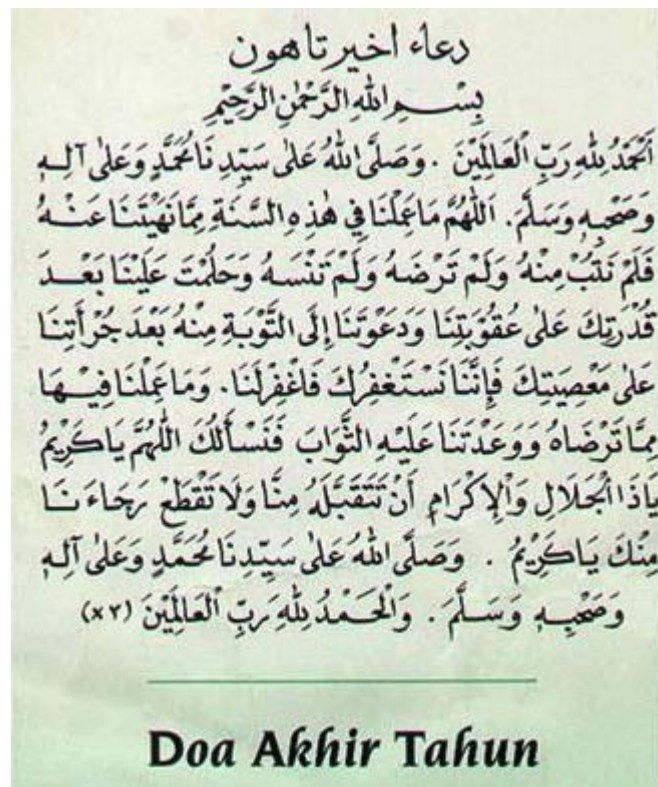 دعاء اخير تاهون
بِسْــمِ اللهِ الرَّحْمٰنِ الرَّحِيْمِ
اَلْحَمْدُ لِلّٰهِ رَبِّ الْعَالَمِيْنَ . وَصَلَّى اللهُ عَلٰى سَيِّدِنَا مُحَمَّدٍ وَعَلٰى آلِــهِ
وَصَحْبِهِ وَسَلَّمَ. اَللّٰهُمَّ مَا عَمِلْنَا فِي هٰذِهِ السَّنَةِ مِمَّا نَهَيْتَنَا عَنْــهُ
فَلَمْ نَتُبْ مِنْهُ وَلَمْ تَرْضَهُ وَلَمْ تَنْسَهُ وَحَلُمْتَ عَلَيْنَا بَعْــدَ
قُدْرَتِكَ عَلٰى عُقُوْبَتِنَا وَدَعَوْتَنَا إِلَى التَّوْبَةِ مِنْهُ بَعْدَ جُرْأَتِنَا
عَلٰى مَعْصِيَتِكَ فَإِنَّنَا نَسْتَغْفِرُكَ فَاغْفِرْلَنَا. وَمَا عَمِلْنَا فِيْــهَا
مِمَّا تَرْضَاهُ وَوَعَدْتَنَا عَلَيْهِ الثَّوَابَ فَنَسْأَلُكَ اللّٰهُمَّ يَا كَرِيْمُ
يَاذَا الْجَلَالِ وَالْإِكْرَامِ أَنْ تَتَقَبَّلَهُ مِنَّا وَلَا تَقْطَعْ رَجَاءَ نَــا
مِنْكَ يَا كَرِيْمُ . وَصَلَّى اللهُ عَلٰى سَيِّدِنَا مُحَمَّدٍ وَعَلٰى آلِــهِ
وَصَحْبِــهِ وَسَلَّمَ . وَالْحَمْدُ لِلّٰهِ رَبِّ الْعَالَمِيْنَ (٣×)
Doa Akhir Tahun